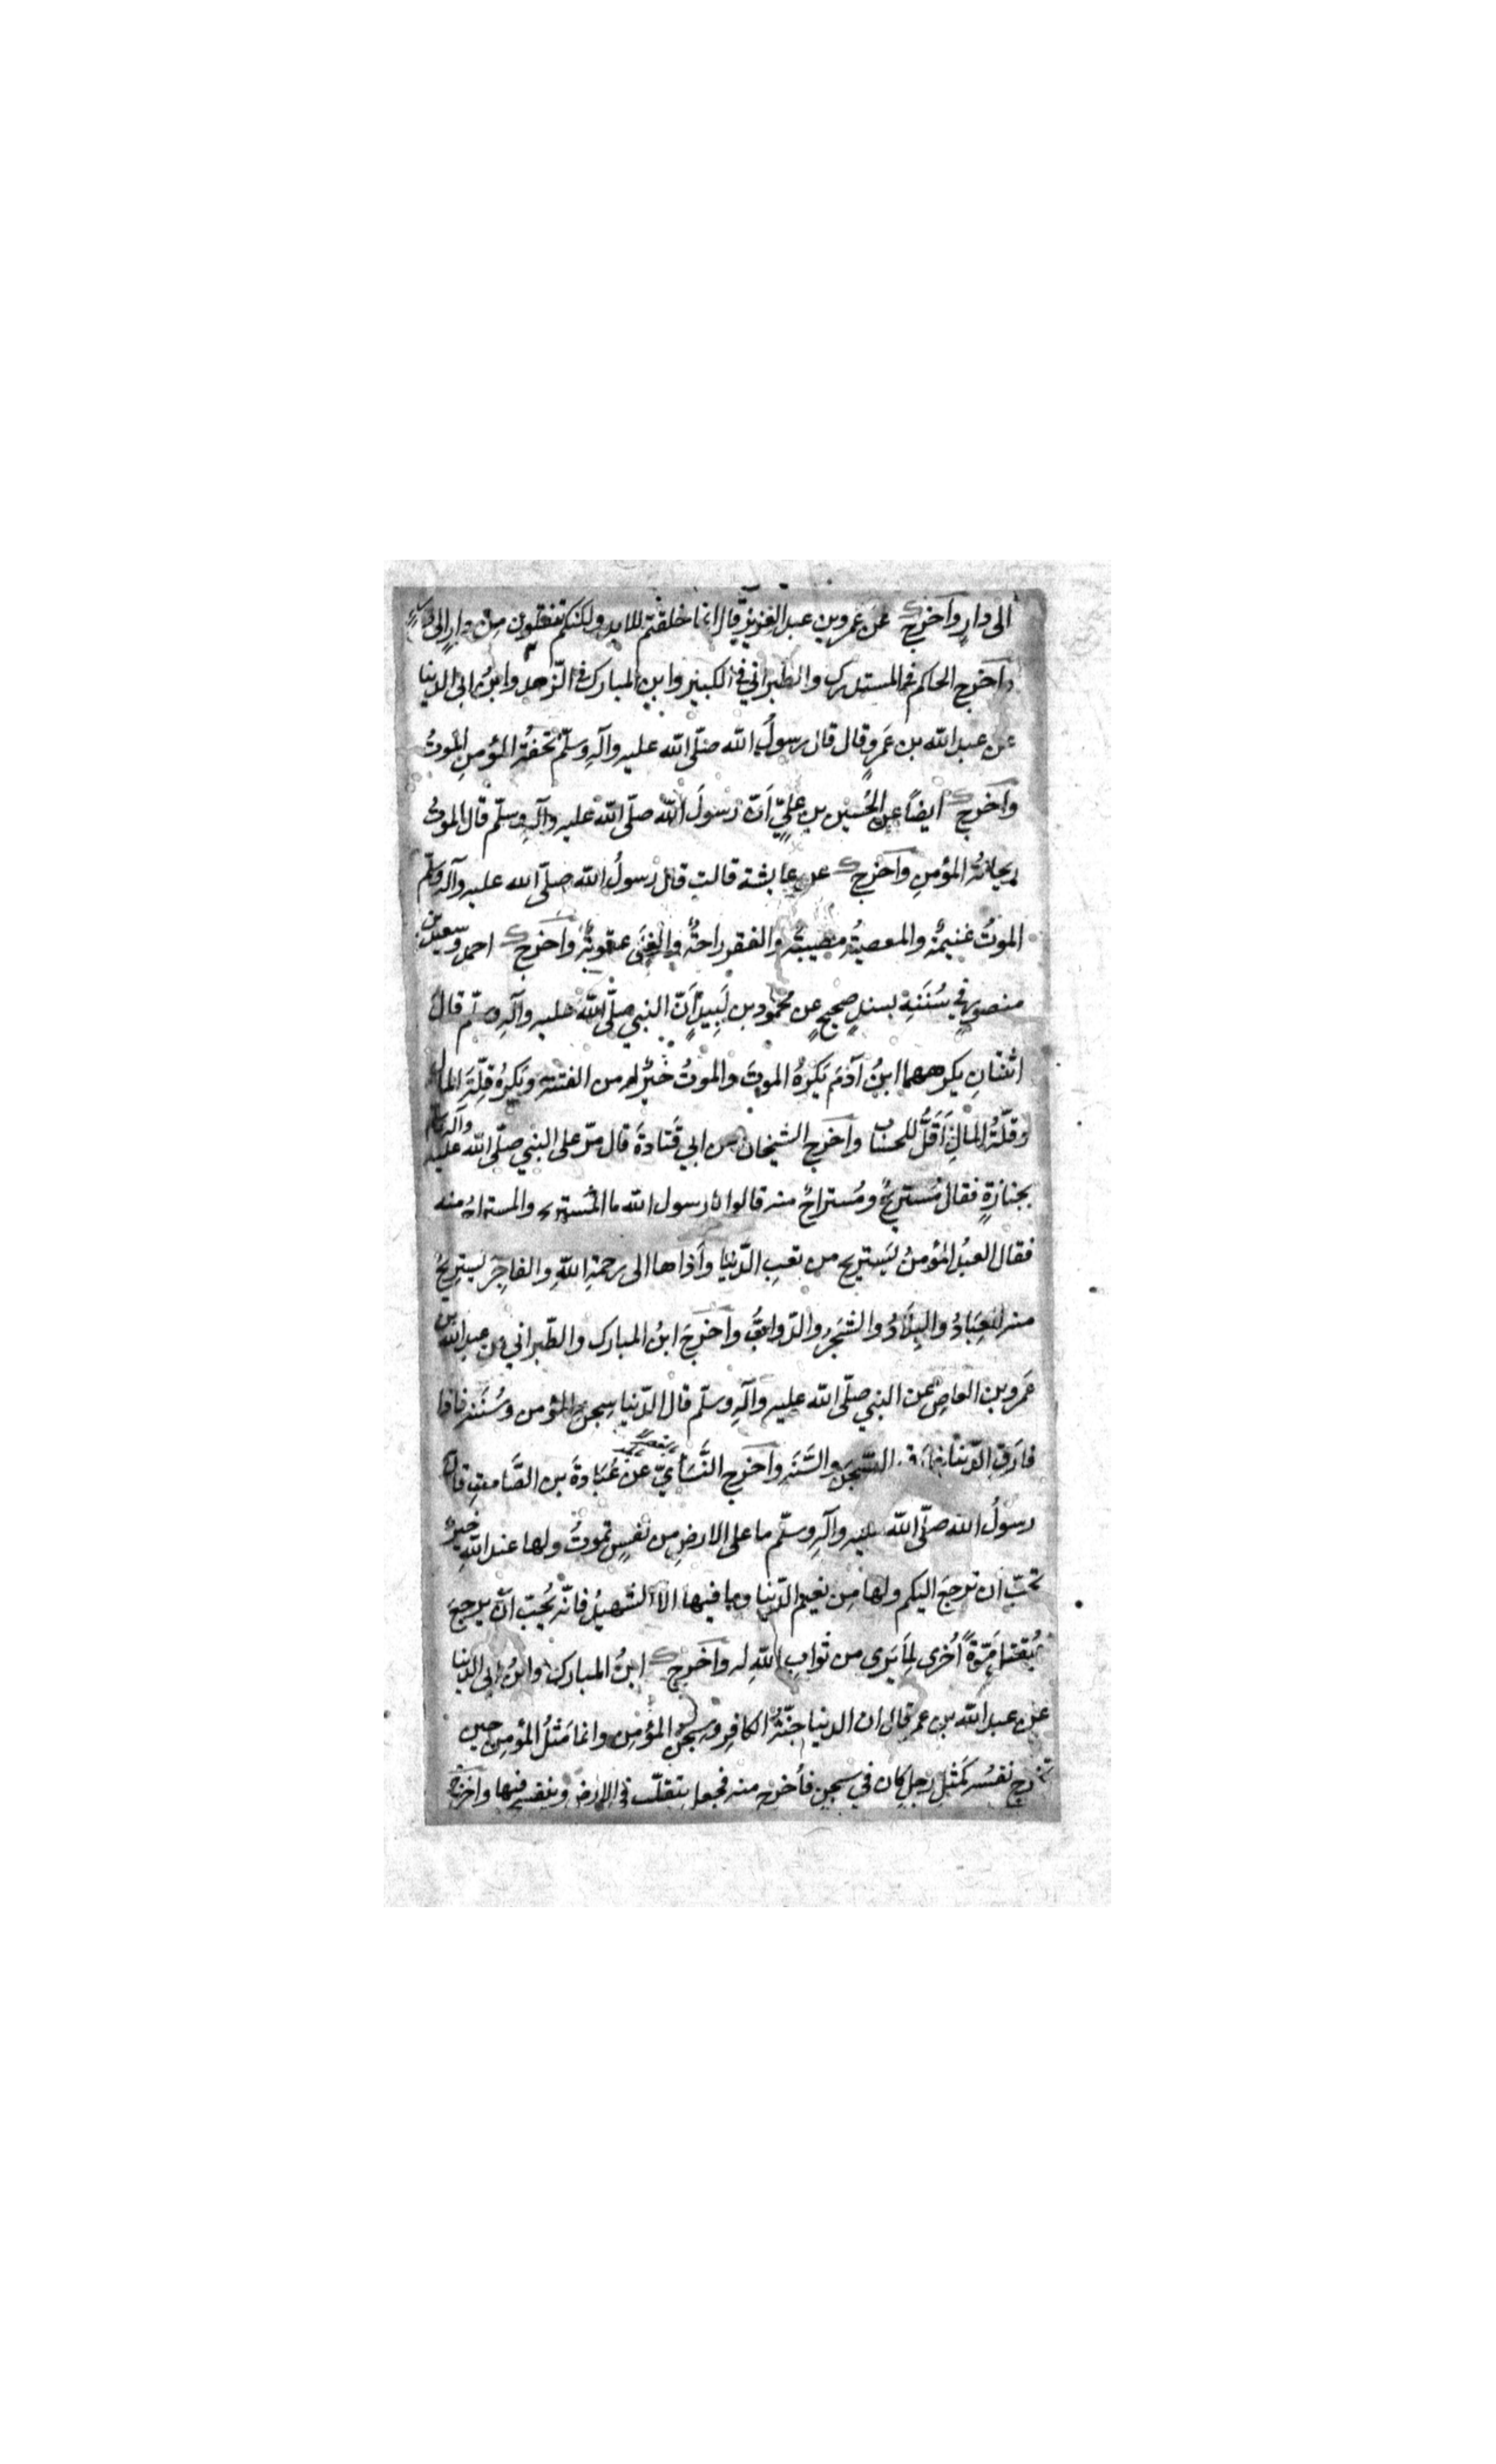 الى دارٍ واخرج عن عمرو بن عبد العزيز قال انما خلقتم للابد ولكنكم تنتقلون من دارٍ الى دار
واخرج الحاكم في المستدرك والطبراني في الكبير وابن المبارك في الزهد وابنُ ابي الدنيا
عن عبد الله بن عَمرٍو قال قال رسولُ الله صلّى الله عليه وآلهِ وسلّم تحفةُ المؤمنِ الموتُ
واخرج ايضاً عن الحُسين بن عليٍّ اَنّ رسولَ الله صلّى الله عليه وآلهِ وسلّم قال الموتُ
ريحانةُ المؤمنِ واخرج عن عايشة قالت قال رسولُ الله صلّى الله عليه وآله وسلّم
الموتُ غنيمةٌ والمعصيةُ مصيبةٌ والفقر راحةٌ والغِنَى عقوبةٌ واخرج احمد وسعيد بن
منصورٍ في سُنَنِهِ بسندٍ صحيحٍ عن محمود بن لَبِيدٍ اَنّ النبي صلّى الله عليه وآلهِ وسلّم قالَ
اثنانِ يكرههما ابنُ آدمَ يَكرَهُ الموتَ والموتُ خيرٌ له من الفتنة ويَكرهُ قِلّةَ المال
وقلّةُ المالِ اَقَلُّ للحساب واخرج الشيخان عن ابي قَتادةَ قال مرّ على النبي صلّى الله عليه وآله وسلم
بجنازةٍ فقال مُستريحٌ ومُستراحٌ منه قالوا يا رسول الله ما المُستريح والمستراحُ منه
فقال العبدُ المؤمنُ يَستريح من تعبِ الدّنيا واَذاها الى رحمةِ اللهِ والفاجِرَ يَستريحُ
منه العِبَادُ والبِلَادُ والشَجرُ والدّوابُّ واخرجَ ابنُ المبارك والطّبراني عن عبد الله بن
عَمرو بن العاصِ عن النبي صلّى الله عليه وآلهِ وسلّم قال الدّنيا سِجنُ المؤمن وسُنَتهُ فاذا
فارَق الدّنيا فارق السّجنَ والسَّنَةَ واخرج النَّسَائيّ عن عُبَادةَ بن الصَّامتِ قال
رسولُ الله صلّى الله عليه وآلهِ وسلّم ما على الارضِ من نفسٍ تموتُ ولها عند اللهِ خيرٌ
تحبّ ان ترجعَ اليكم ولها مِن نعيم الدّنيا وما فيها الّا الشهيدُ فانّه يُحبّ انْ يرجعَ
فيُقتلَ مَرّةً اُخرى لِمَا يَرى من ثوابِ اللهِ له واخرج ابنُ المبارك وابنُ ابي الدنيا
عن عبد الله بن عمر قال ان الدنيا جنّةُ الكافِرِ وسِجنُ المؤمِن وانما مَثَلُ المؤمِنِ حين
تخرج نفسُه كَمثلِ رَجلٍ كان في سِجنٍ فاُخرجَ منه فجعل يتقلّب في الارض ويتفسح فيها واخرج